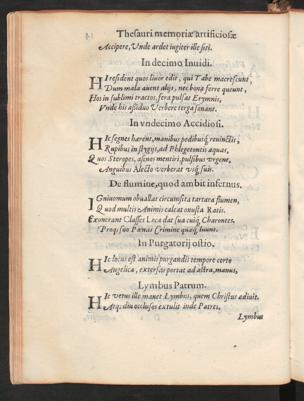 Thesauri memoriæ artificiosæ
Accipere, Vnde ardet iugiter ille siti.
In decimo Inuidi.
HI resident quos liuor edit, qui Tabe macrescunt,
Dum mala auent alijs, nec bona ferre queunt,
Hos in sublimi tractos, fera pulsat Erynnis,
Vnde his assiduo Verbere terga sonant.
In vndecimo Accidiosi.
HIc segnes hærent, manibus pedibusq; reuinctis,
Rupibus in stygijs, ad Phlegetontis aquas,
Quos Steropes, asinos mentiri, pulsibus vrgene,
Anguibus Alecto verberat vsq; suis.
De flumine, quod ambit infernus.
IGniuomum obuallat circumsita tartara flumen,
Quod multis Animis caleat onusta Ratis.
Exonerant Classes Loca dat sua cuiq; Charontes.
Proq; suo Pœnas Crimine quæq; luunt.
In Purgatorij ostio.
HIc locus est animis purgandis tempore certo
Angelica, extersas portat ad astra, manus.
Lymbus Patrum.
HIc vetus ille manet Lymbus, quem Christus adiuit.
Atq; diu occlusos extulit inde Patres.
Lymbus